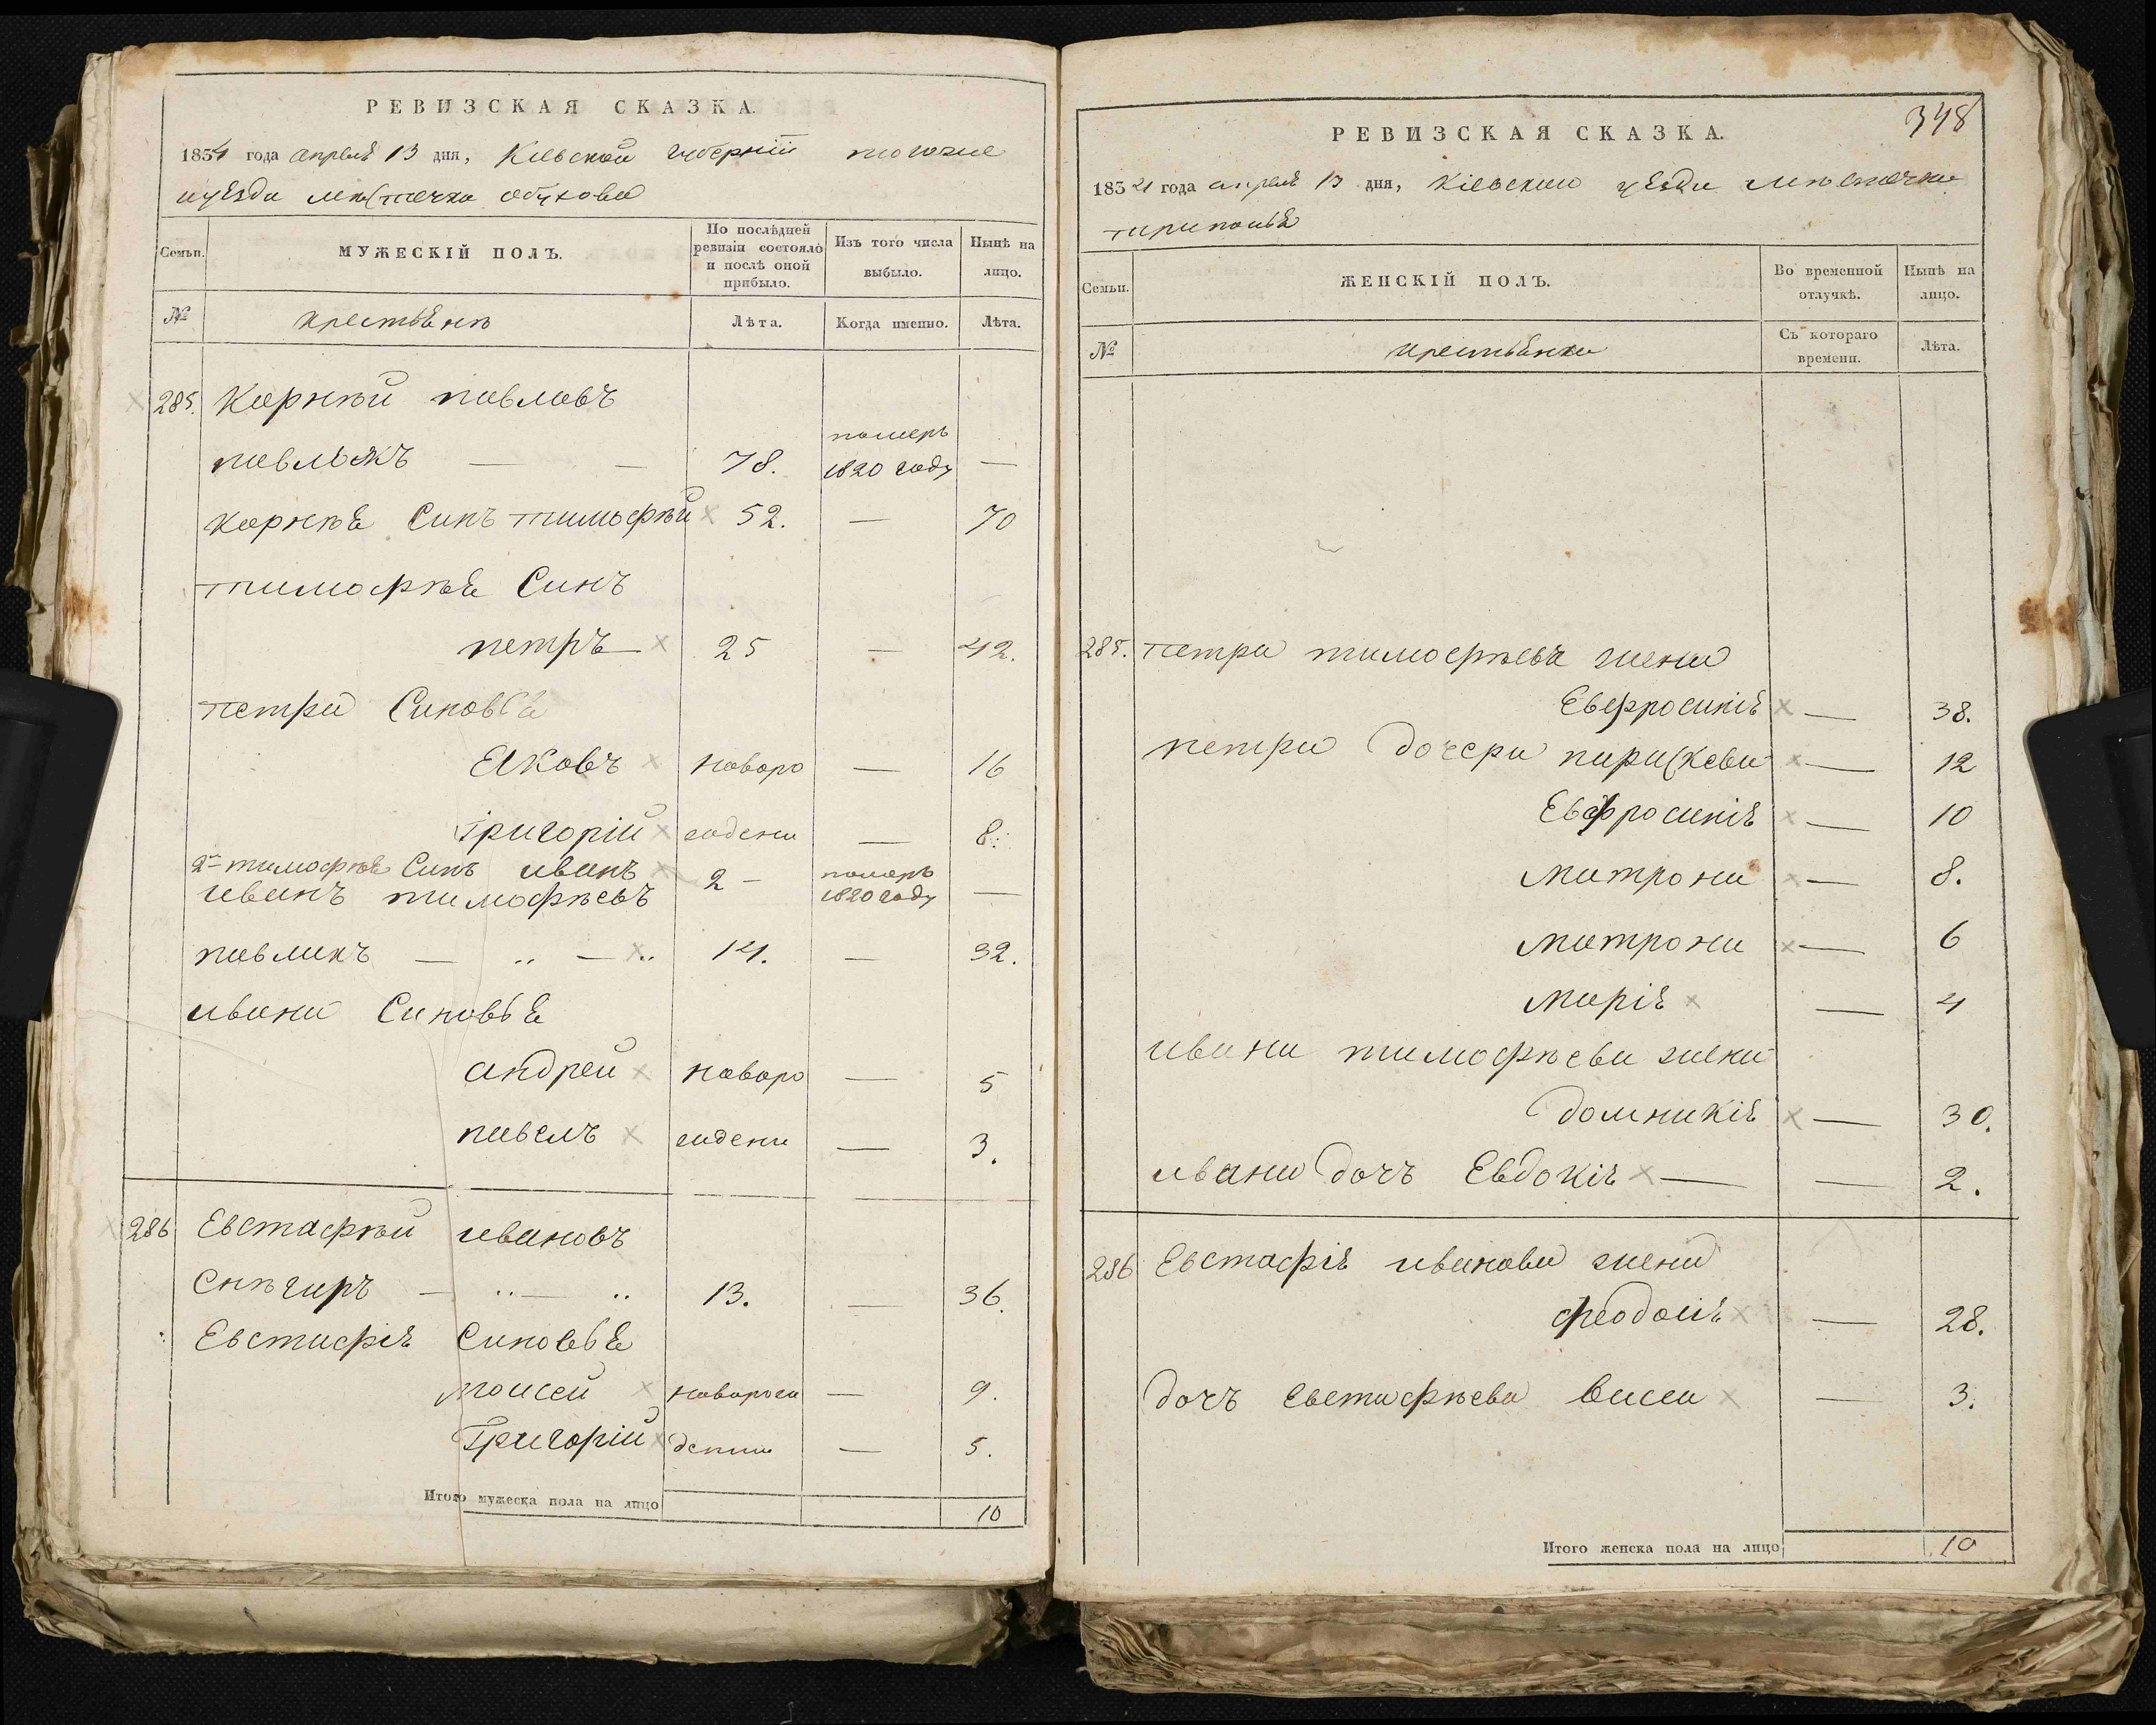 РЕВИЗСКАЯ СКАЗКА.
1834 года апреля 13 дня, Киевской губернии тогоже
уезда местечка Обухова
Семьи.
МУЖЕСКІЙ ПОЛЪ.
По послѣдней ревизіи состояло и послѣ оной прибыло.
Изъ того числа выбыло.
Нынѣ на лицо.
№
крестьяне
Лѣта.
Когда именно.
Лѣта.
285. Корнѣй павловъ
померъ
павлюкъ — — 78. 1820 году —
корнѣя Синъ тимофѣй 52. — 70
тимофѣя Синъ
петръ — 25 — 42.
петра Синовья
Яковъ новоро — 16
Григорій ждени — 8.
2й тимофѣя Синъ иванъ 2 — померъ 1820 году —
иванъ тимофѣевъ
павликъ — 14. — 32.
ивана Синовья
андрей новоро — 5
павелъ ждени — 3.
286 Евстафѣй ивановъ
Снѣгиръ — 13. — 36.
Евстафія Синовья
моисей новорож — 9.
Григорій денни — 5.
Итого мужеска пола на лицо 10
348
РЕВИЗСКАЯ СКАЗКА.
1834 года апреля 13 дня, Кіевского уезда местечка
триполья
Семьи.
ЖЕНСКІЙ ПОЛЪ.
Во временной отлучкѣ.
Нынѣ на лицо.
№
крестьянки
Съ котораго времени.
Лѣта.
285. петра тимофѣева жена
Евфросинія — 38.
петра дочери параскева — 12
Евфросинія — 10
матрона — 8.
матрона — 6
марія — 4
ивана тимофѣева жена
домникія — 30.
ивана дочъ Евдокія — — 2.
286 Евстафія иванова жена
феодосія — 28.
дочъ евстафѣева васса — 3.
Итого женска пола на лицо 10